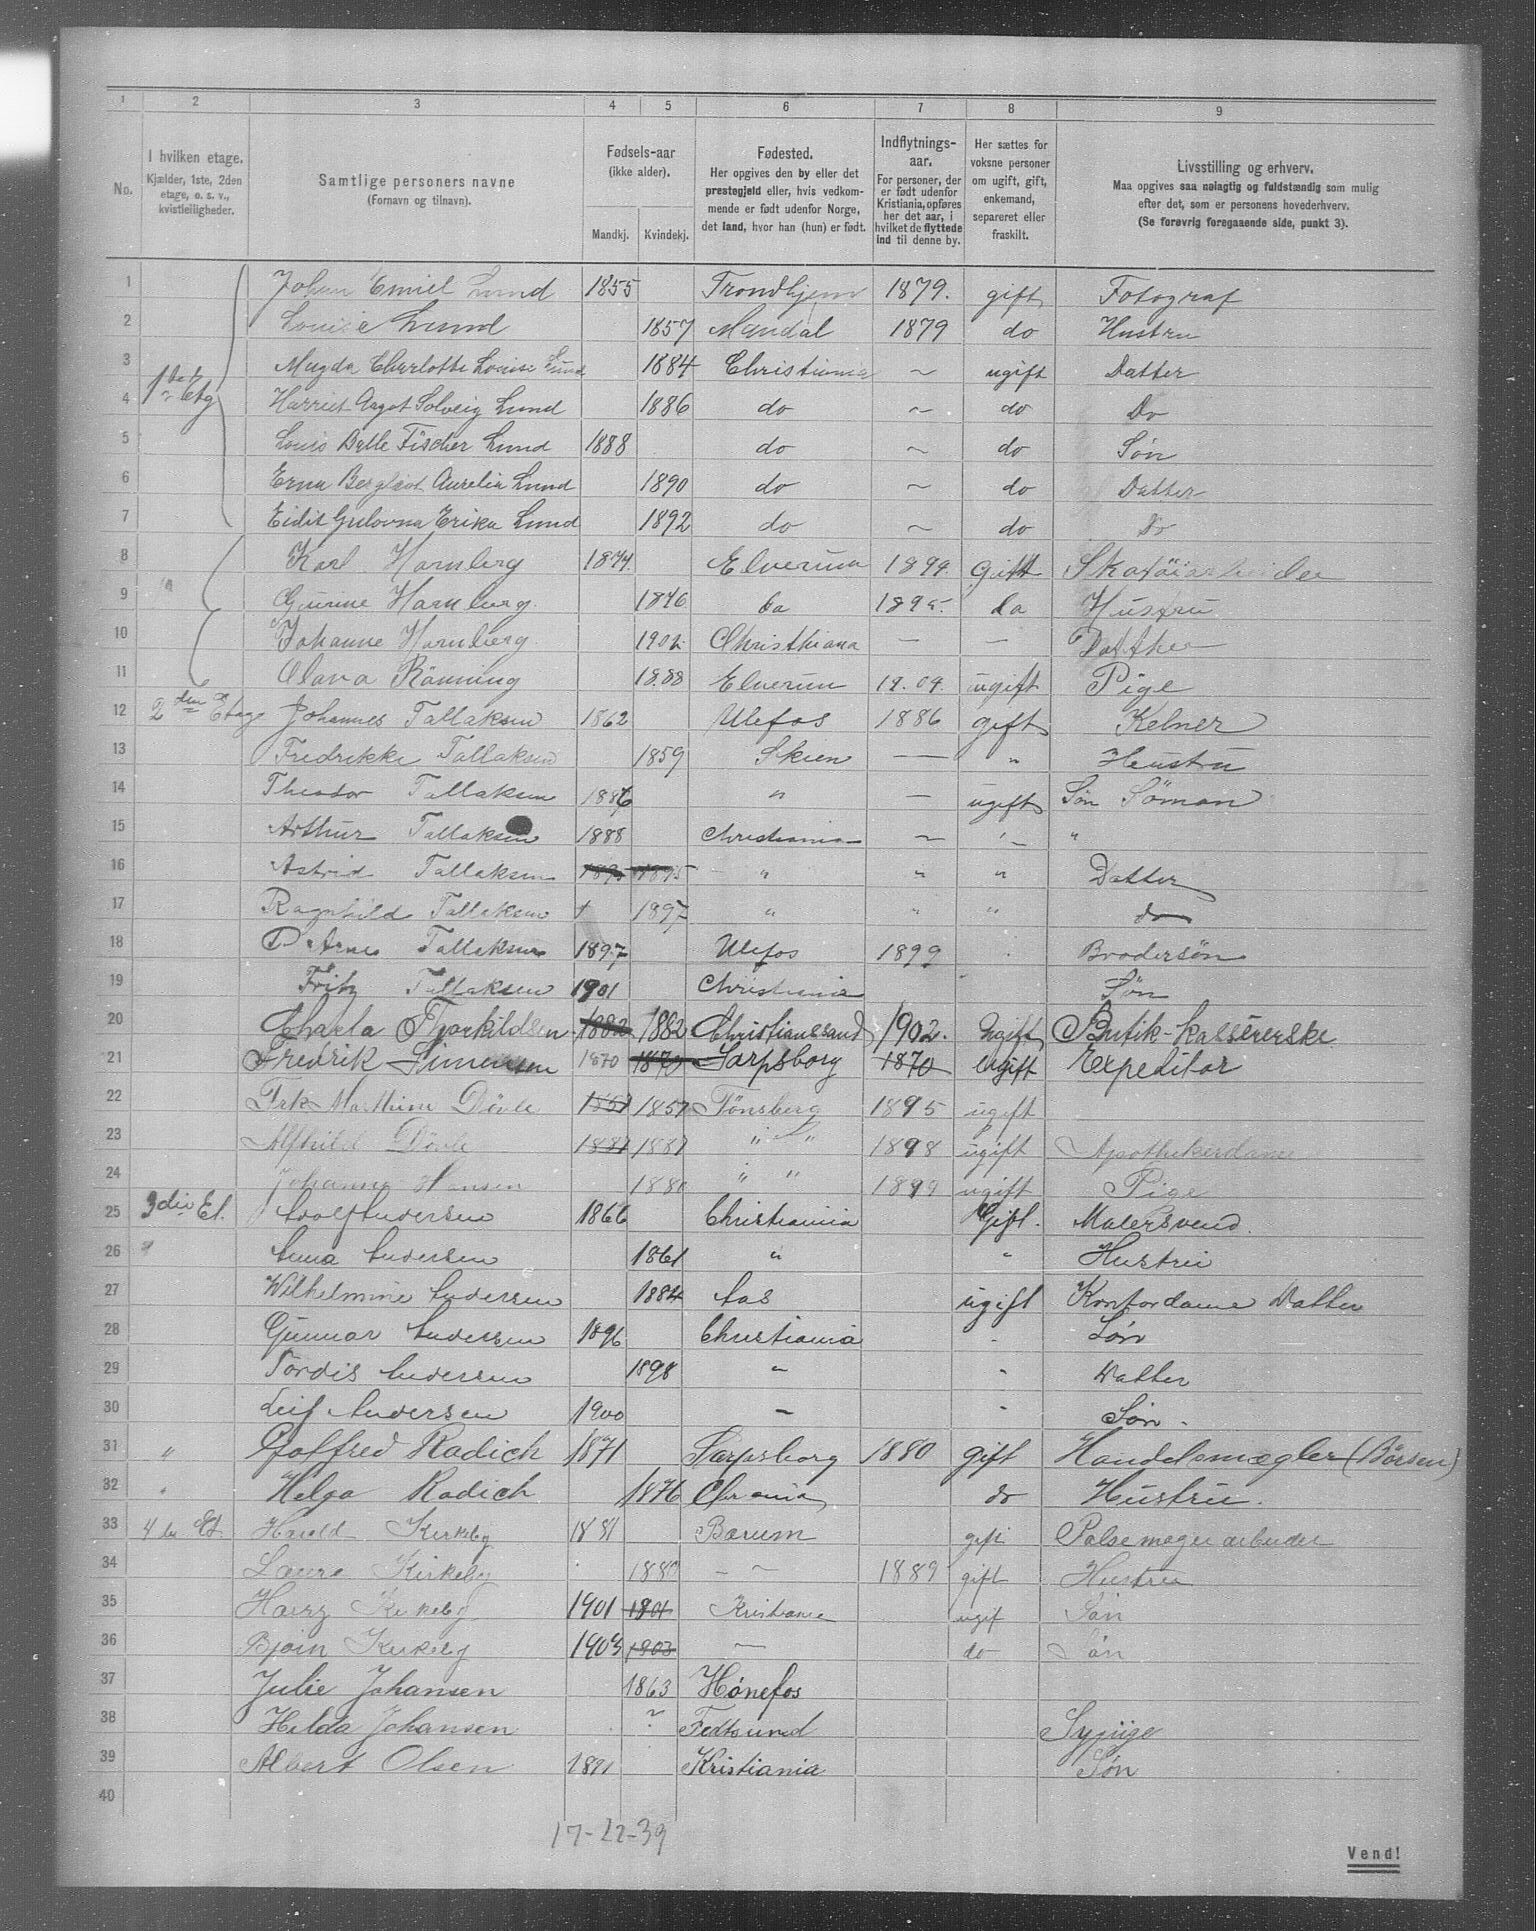 1 2 3 4 5 6 7 8 9
No.
I hvilken etage.
Kjælder, 1ste, 2den
etage, o. s. v.,
kvistleiligheder.
Samtlige personers navne
(Fornavn og tilnavn).
Fødsels-aar
(ikke alder).
Mandkj. Kvindekj.
Fødested.
Her opgives den by eller det
prestegjeld eller, hvis vedkom-
mende er født udenfor Norge,
det land, hvor han (hun) er født.
Indflytnings-
aar.
For personer, der
er født udenfor
Kristiania, opføres
her det aar, i
hvilket de flyttede
ind til denne by.
Her sættes for
voksne personer
om ugift, gift,
enkemand,
separeret eller
fraskilt.
Livsstilling og erhverv.
Maa opgives saa nøiagtig og fuldstændig som mulig
efter det, som er personens hovederhverv.
(Se forøvrig foregaaende side, punkt 3).
1 Johan Emiel Lund 1855 Trondhjem 1879. gift Fotograf
2 Louise Lund 1857 Mandal 1879 do Hustru
3 Magda Charlotte Louise Lund 1884 Christiania ~ ugift Datter
4 1ste Etg Harriet Aagot Solveig Lund 1886 do ~ do Do
5 Louis Balle Fischer Lund 1888 do ~ do Søn
6 Erna Bergliot Aurelia Lund 1890 do ~ do Datter
7 Eidit Gulovna Erika Lund 1892 do ~ do Do
8 Karl Hornberg 1874. Elverum 1899. Gift Skotøiarbeider
9 " Gurine Hornberg. 1876 Do 1895. do Hustru
10 Johanne Hornberg. 1902. Christhiana — — Datther
11 Olava Rönning 1888 Elverum 19.04. ugift Pige
12 2den Etage Johannes Tallaksen 1862 Ulefos 1886 gift Kelner
13 Fredrikke Tallaksen 1859 Skien — " Heustru
14 Theodor Tallaksen 1886 " — ugift Søn Söman
15 Arthur Tallaksen 1888 Christiania ~ " "
16 Astrid Tallaksen 1895 1895 " " " Datter
17 Ragnhild Tallaksen 1897 " " " do
18 Arne Tallaksen 1897 Ulefos 1899 Brodersön
19 Fritz Tallaksen 1901 Christiania Sön
20 Charla Tjorkildsen 1882 1882 Christianssand 1902. Ugift Butik-kassererske
21 Fredrik Simensen 1870 1870 Sarpsborg 1870 Ugift Expeditør
22 Frk Marthine Dövle 1857 1857 Tönsberg 1895 ugift
23 Alfhild Dövle 1887 1887 " " 1898 ugift Apothekerdame
24 Johanna Hansen 1880 " " 1899 ugift Pige
25 3die Et. Adolf Andersen 1866 Christiania Gift. Malersvend.
26 " Anna Andersen 1861 " " Hustru
27 Wilhelmine Andersen 1884 Aas ugift Kontordame Datter
28 Gunnar Andersen 1896 Christiania - Søn
29 Tordis Andersen 1898 " - Datter
30 Leif Andersen 1900 " - Søn.
31 " Gotfred Radich 1871 Sarpsborg 1880 gift Handelsmægler (Børsen)
32 " Helga Radich 1876 Chrania do Hustru.
33 4de Et Harald Kirkeby 1881 Bærum gift Pølsemager arbeider
34 Laura Kirkeby — ~ 1889 gift Hustru
35 Harry Kirkeby 1901 1901 Kristiania ugif Søn
36 Bjørn Kirkeby 1903 1903 — do Søn
37 Julie Johansen 1863 Hønefos
38 Hilda Johansen ? Fedtsund Sypige
39 Albert Olsen 1891 Kristiania Søn
40
17-22-39
Vend!